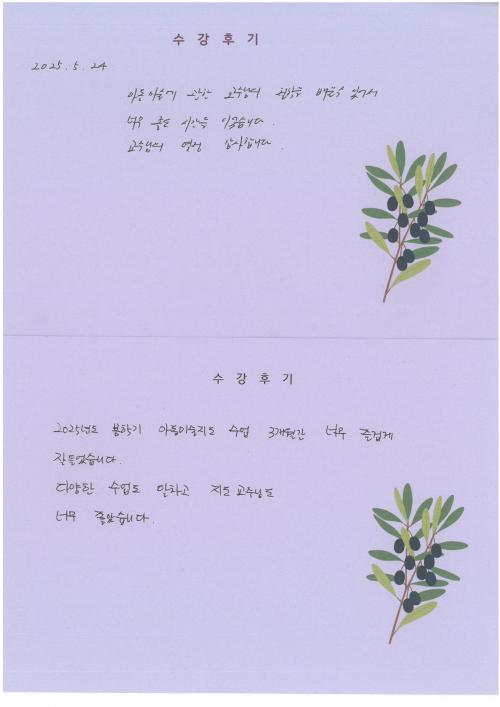 수 강 후 기
2025. 5. 24
아동미술에 관한 교수님의 배울 수 있어서
너무 좋은 시간을 이었습니다.
교수님의 열정 감사합니다.
수 강 후 기
2025년도 봄학기 아동미술지도 수업 3개월간 너무 즐겁게
잘들었습니다.
다양한 수업도 알차고 지도 교수님도
너무 좋았습니다.